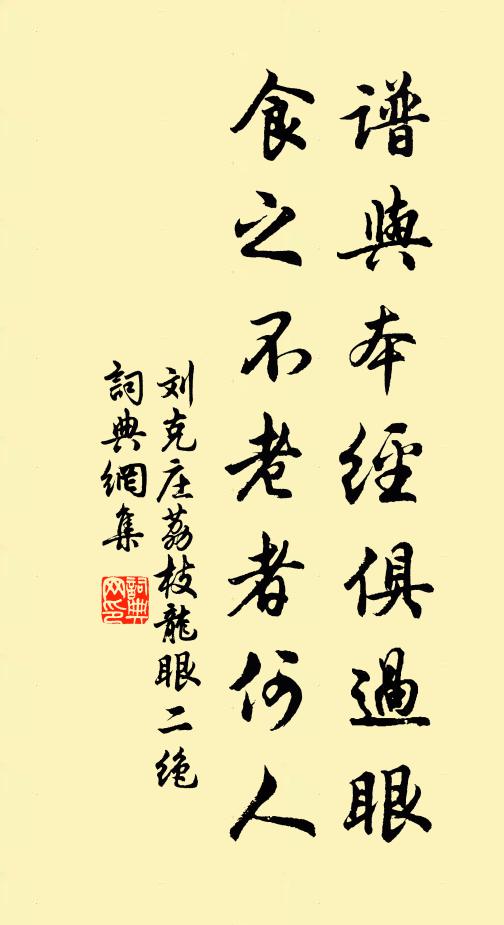 谱與本經俱過眼
食之不老者何人
刘克庄荔枝龍眼二绝
詞典網集
詞典
网印